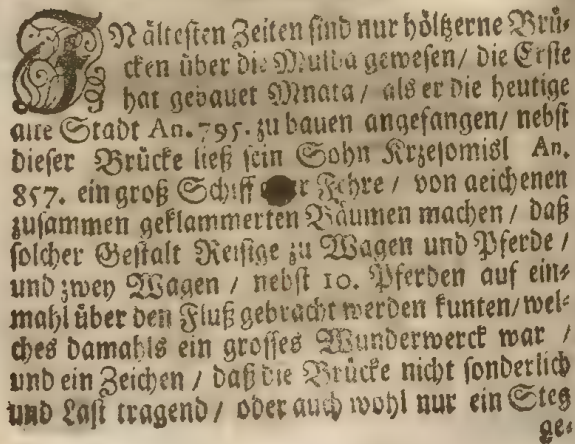 IN ältesten Zeiten sind nur höltzerne Brü-
cken über die Mulda gewesen / die Erste
hat gebauet Mnata / als er die heutige
alte Stadt An. 795. zu bauen angefangen / nebst
dieser Brücke ließ sein Sohn Krzesomisl An.
857. ein groß Schiff Fehre / von aeichenen
zusammen geklammerten Bäumen machen / daß
solcher Gestalt Reisige zu Wagen und Pferde /
und zwey Wagen / nebst 10. Pferden auf ein-
mahl über den Fluß gebracht werden kunten / wel-
ches damahls ein grosses Wunderwerck war /
und ein Zeichen / daß die Brücke nicht sonderlich
und Last tragend / oder auch wohl nur ein Steg
ge-